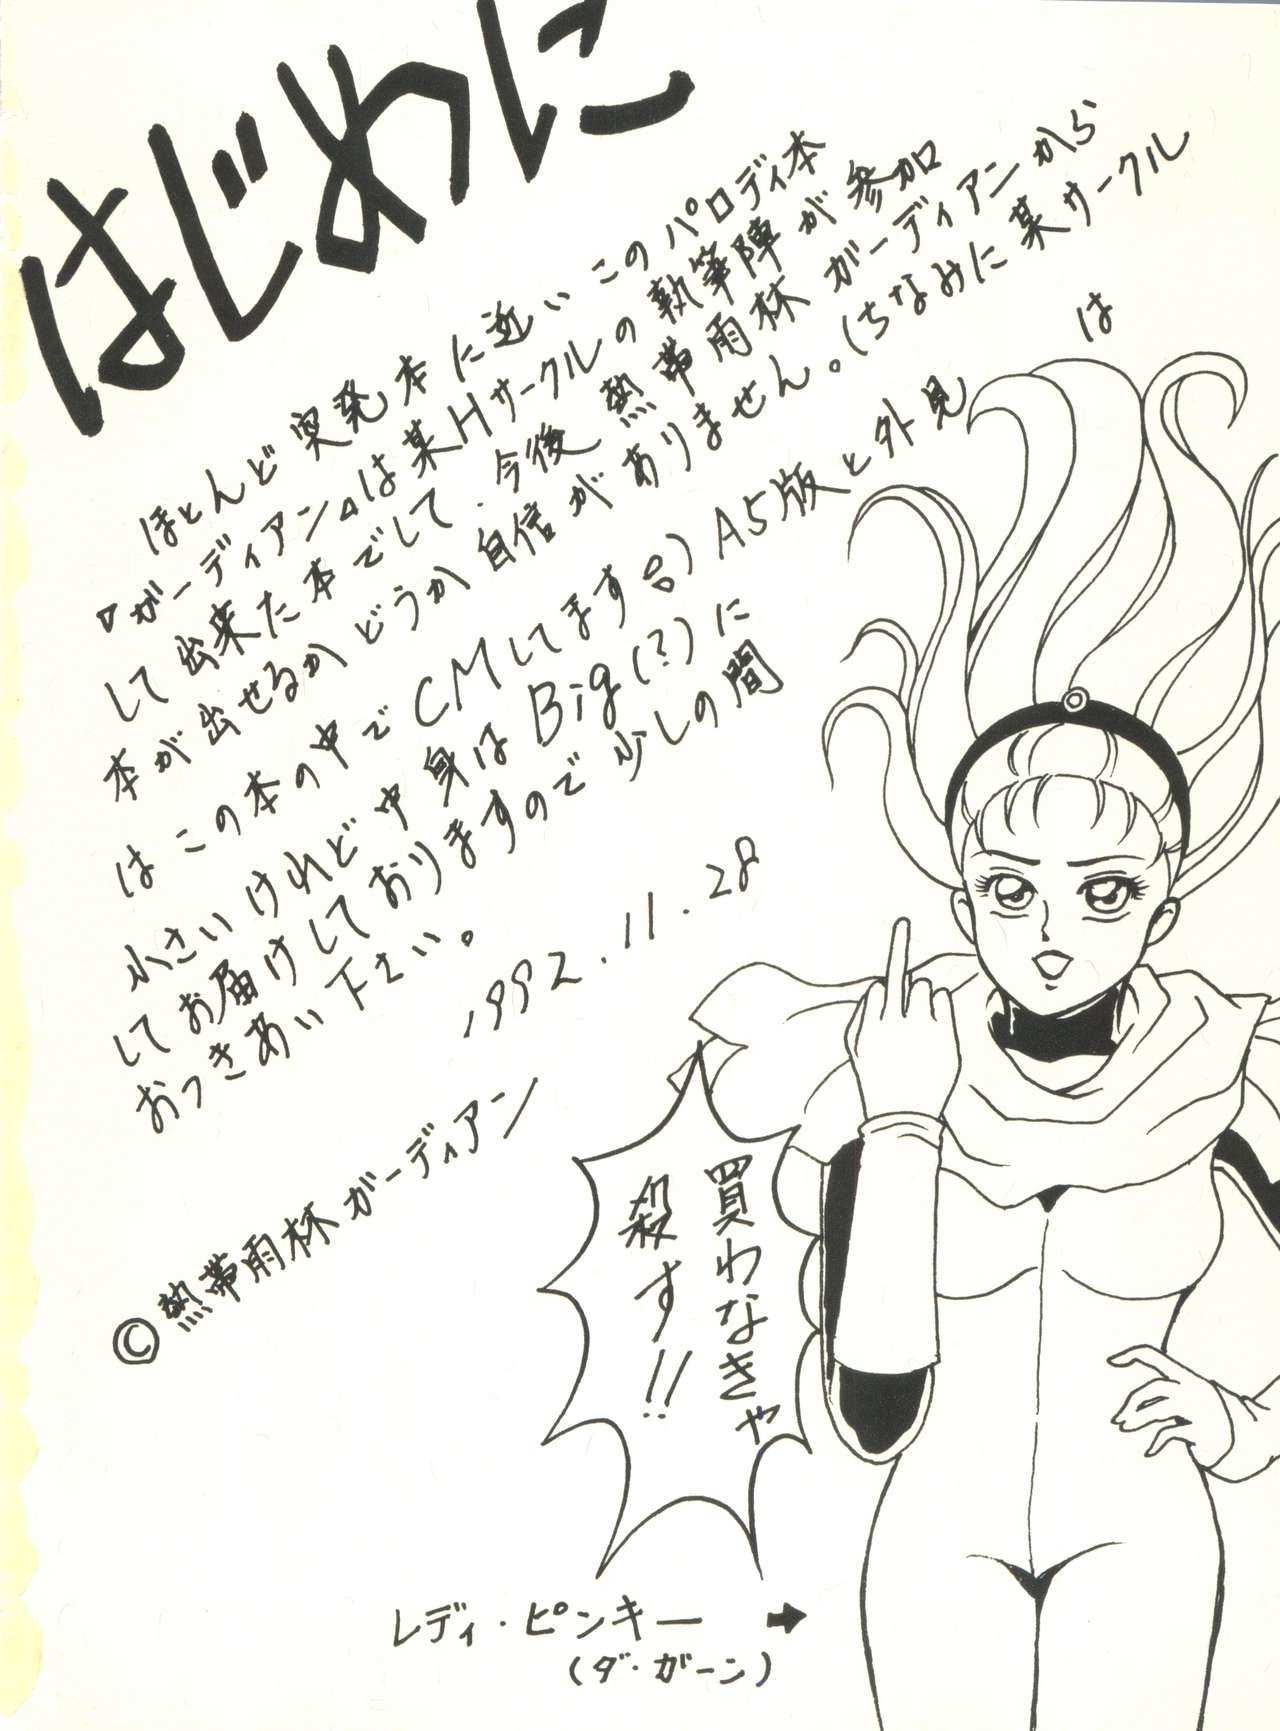 はじめに
ほとんど突発本に近いこのパロディ本
『ガーディアン』は某Hサークルの執筆陣が参加
して出来た本でして、今後熱帯雨林ガーディアンから
本が出せるかどうか自信がありません。(ちなみに某サークル
はこの本の中でCMしてます
A5版と外見は
小さいけれど中身はBig(?)に
してお届けしておりますので少しの間
おつきあい下さい。
1992.11.28
©熱帯雨林ガーディアン
買わなきゃ
殺す!!
レディ・ピンキー →
(ダ・ガーン)